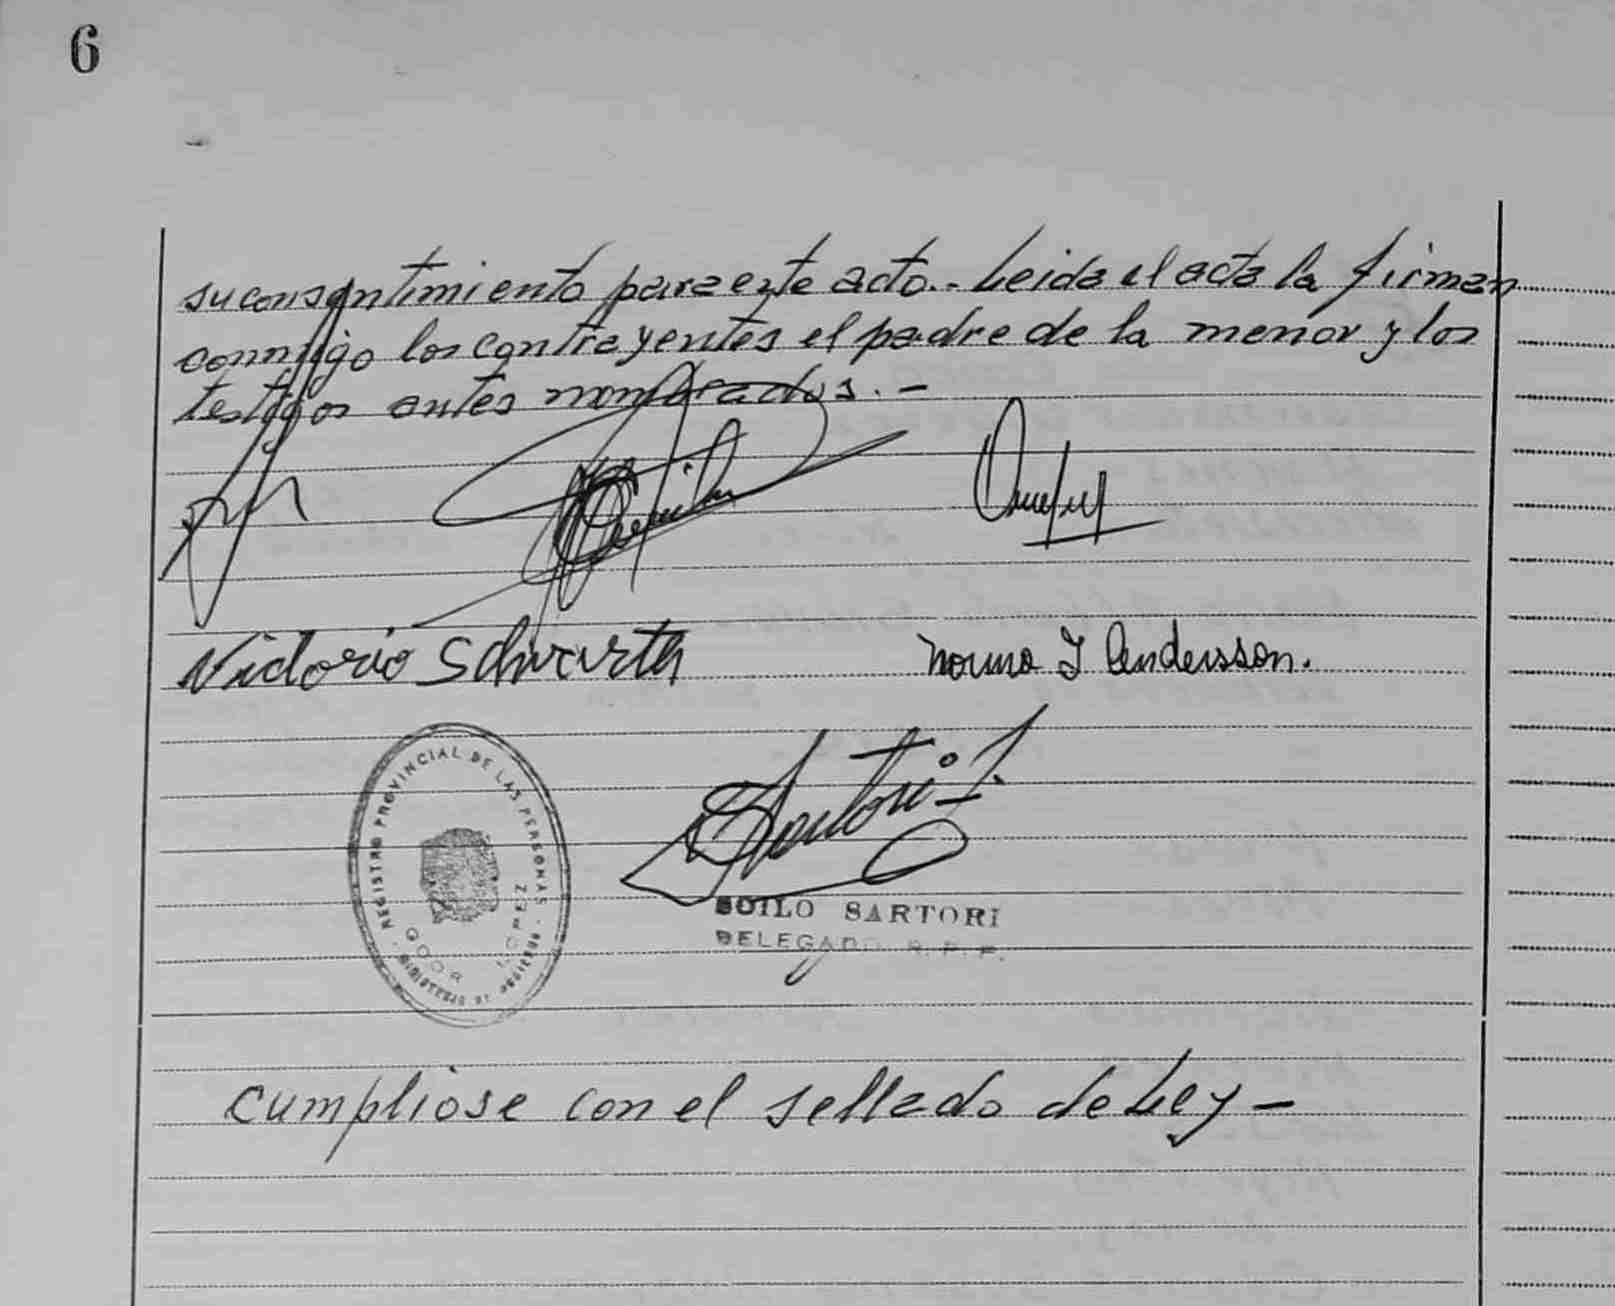 6
su consentimiento para este acto.- Leida el acta la firman
conmigo los contrayentes el padre de la menor y los
testigos antes nombrados.-
Victorio Schvartz
Norma I Andersson.
REGISTRO PROVINCIAL DE LAS PERSONAS
GDOR LOPEZ
Sartori
SOILO SARTORI
DELEGADO R. P. P.
Cumpliose con el sellado de Ley-